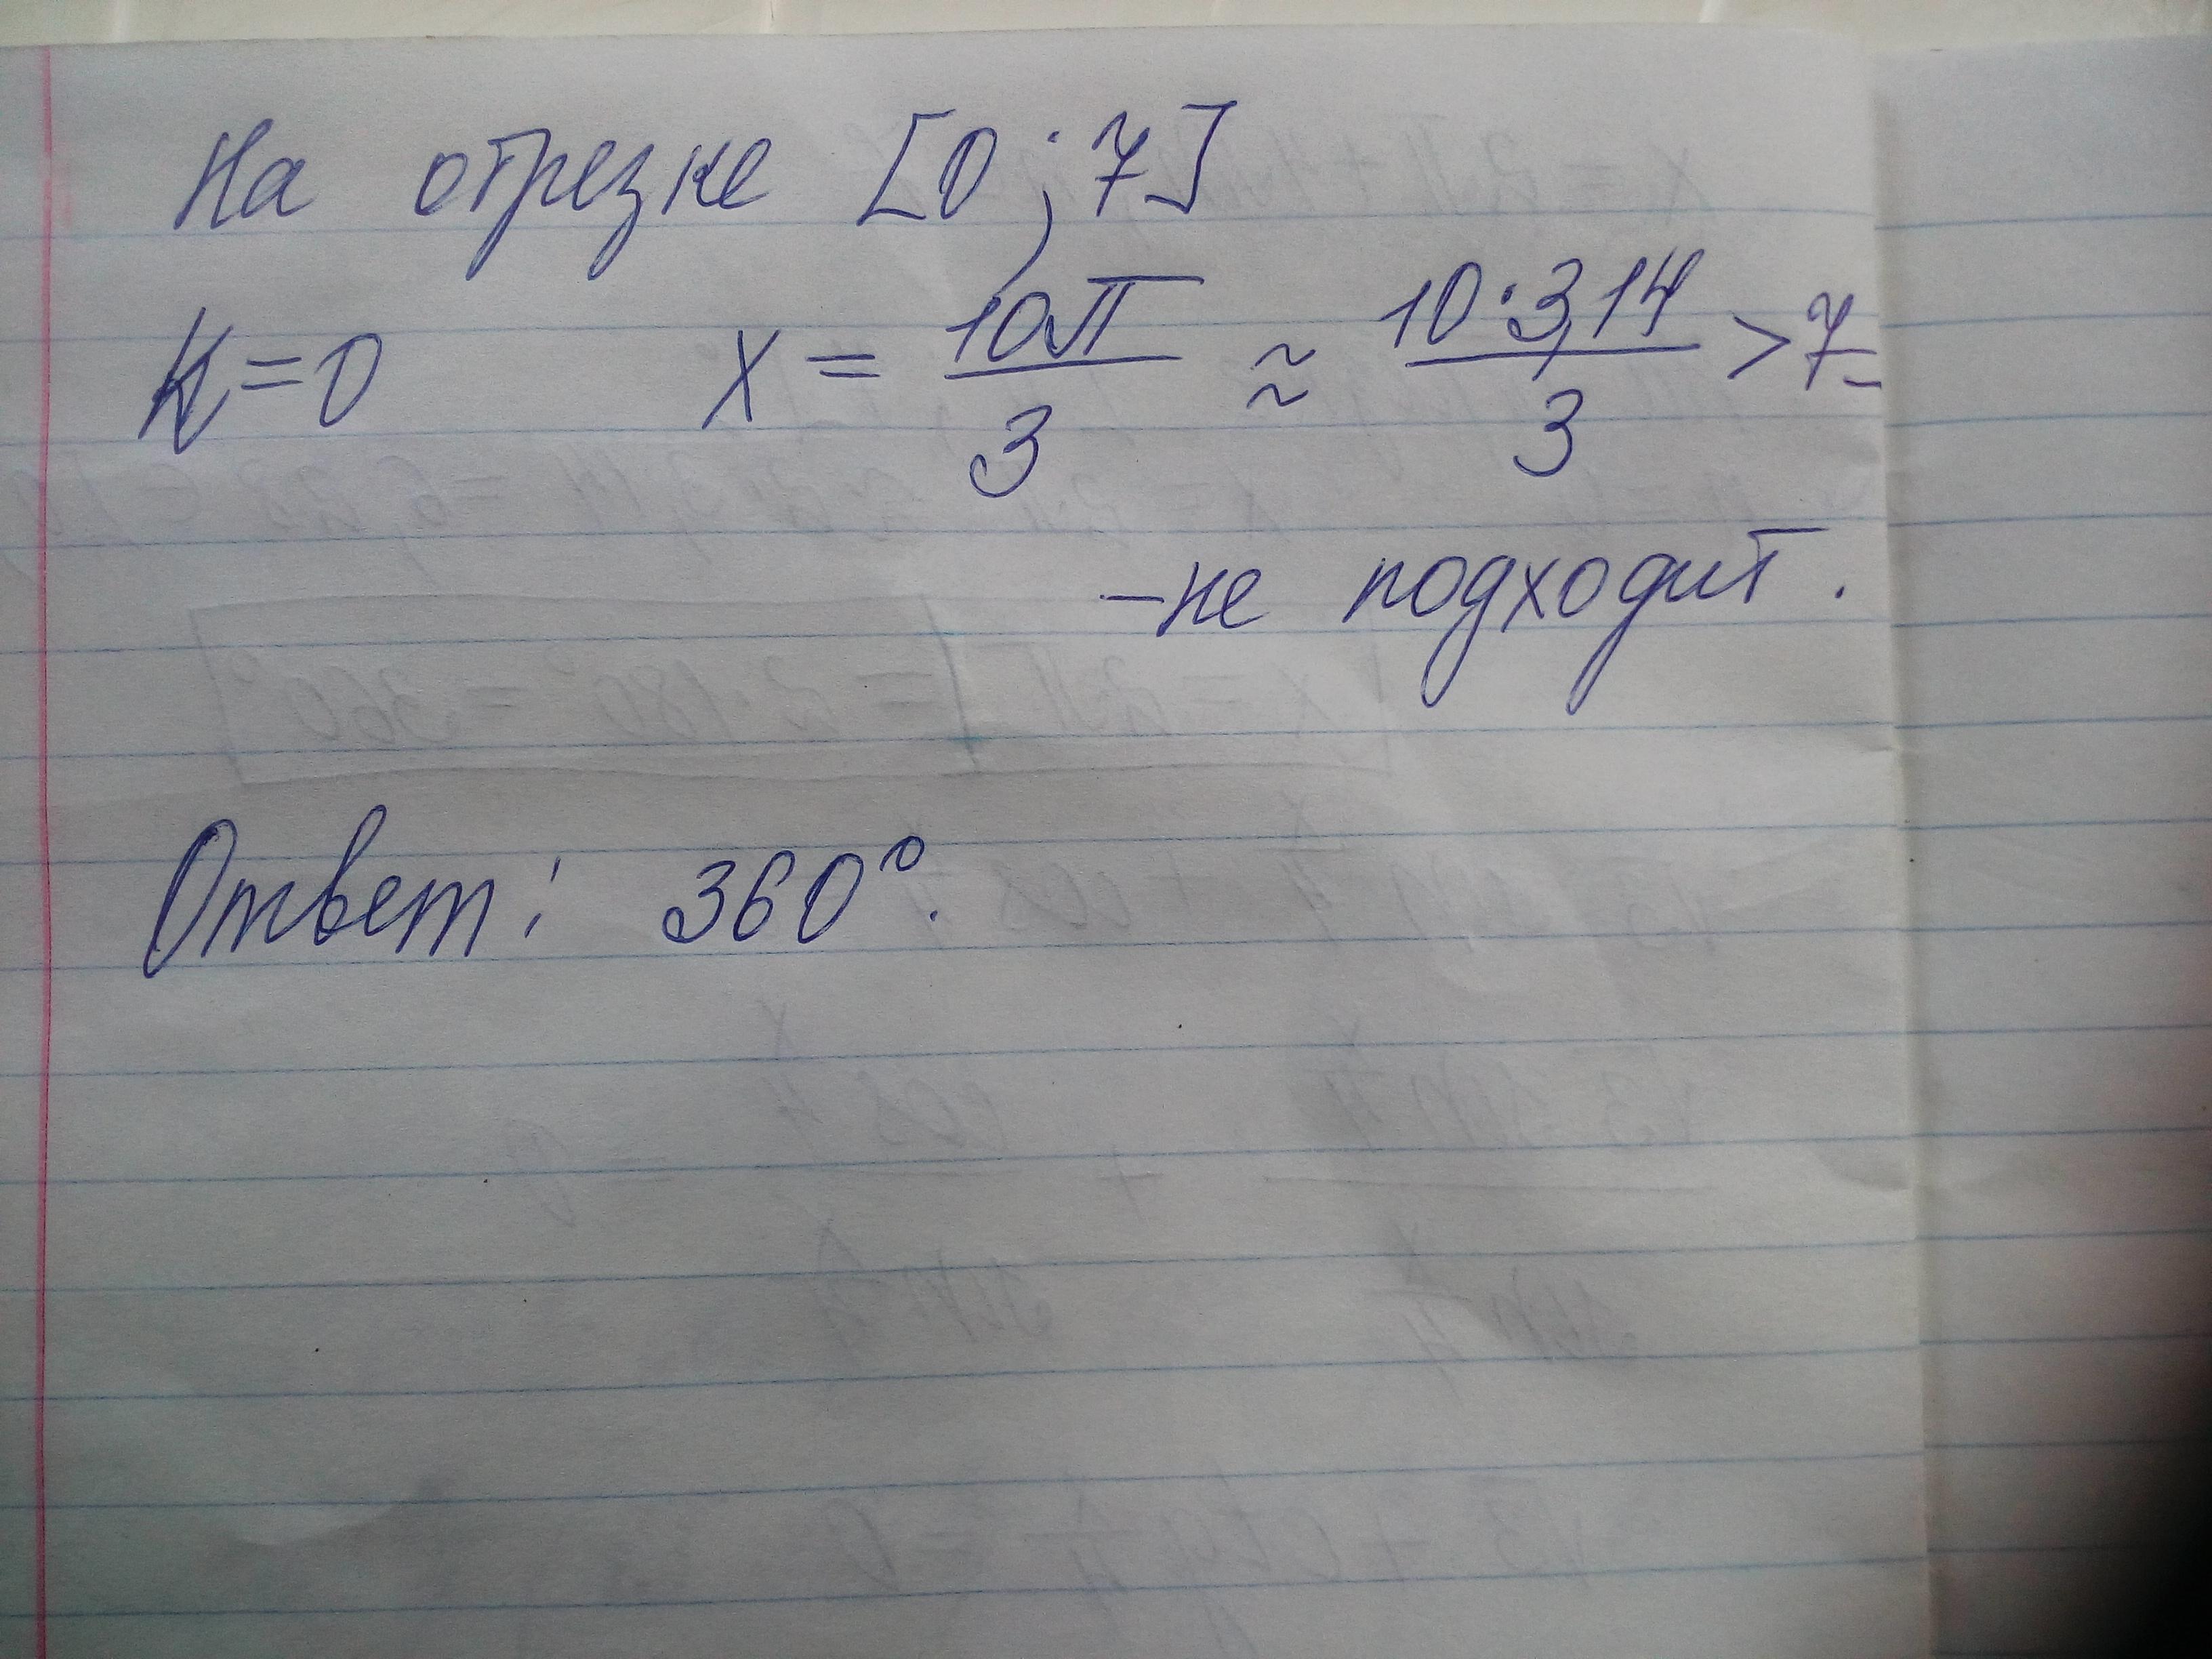 На отрезке [0; 7]
K=0 x = 10π/3 ≈ 10·3,14/3 > 7 –
– не подходит.
Ответ: 360°.